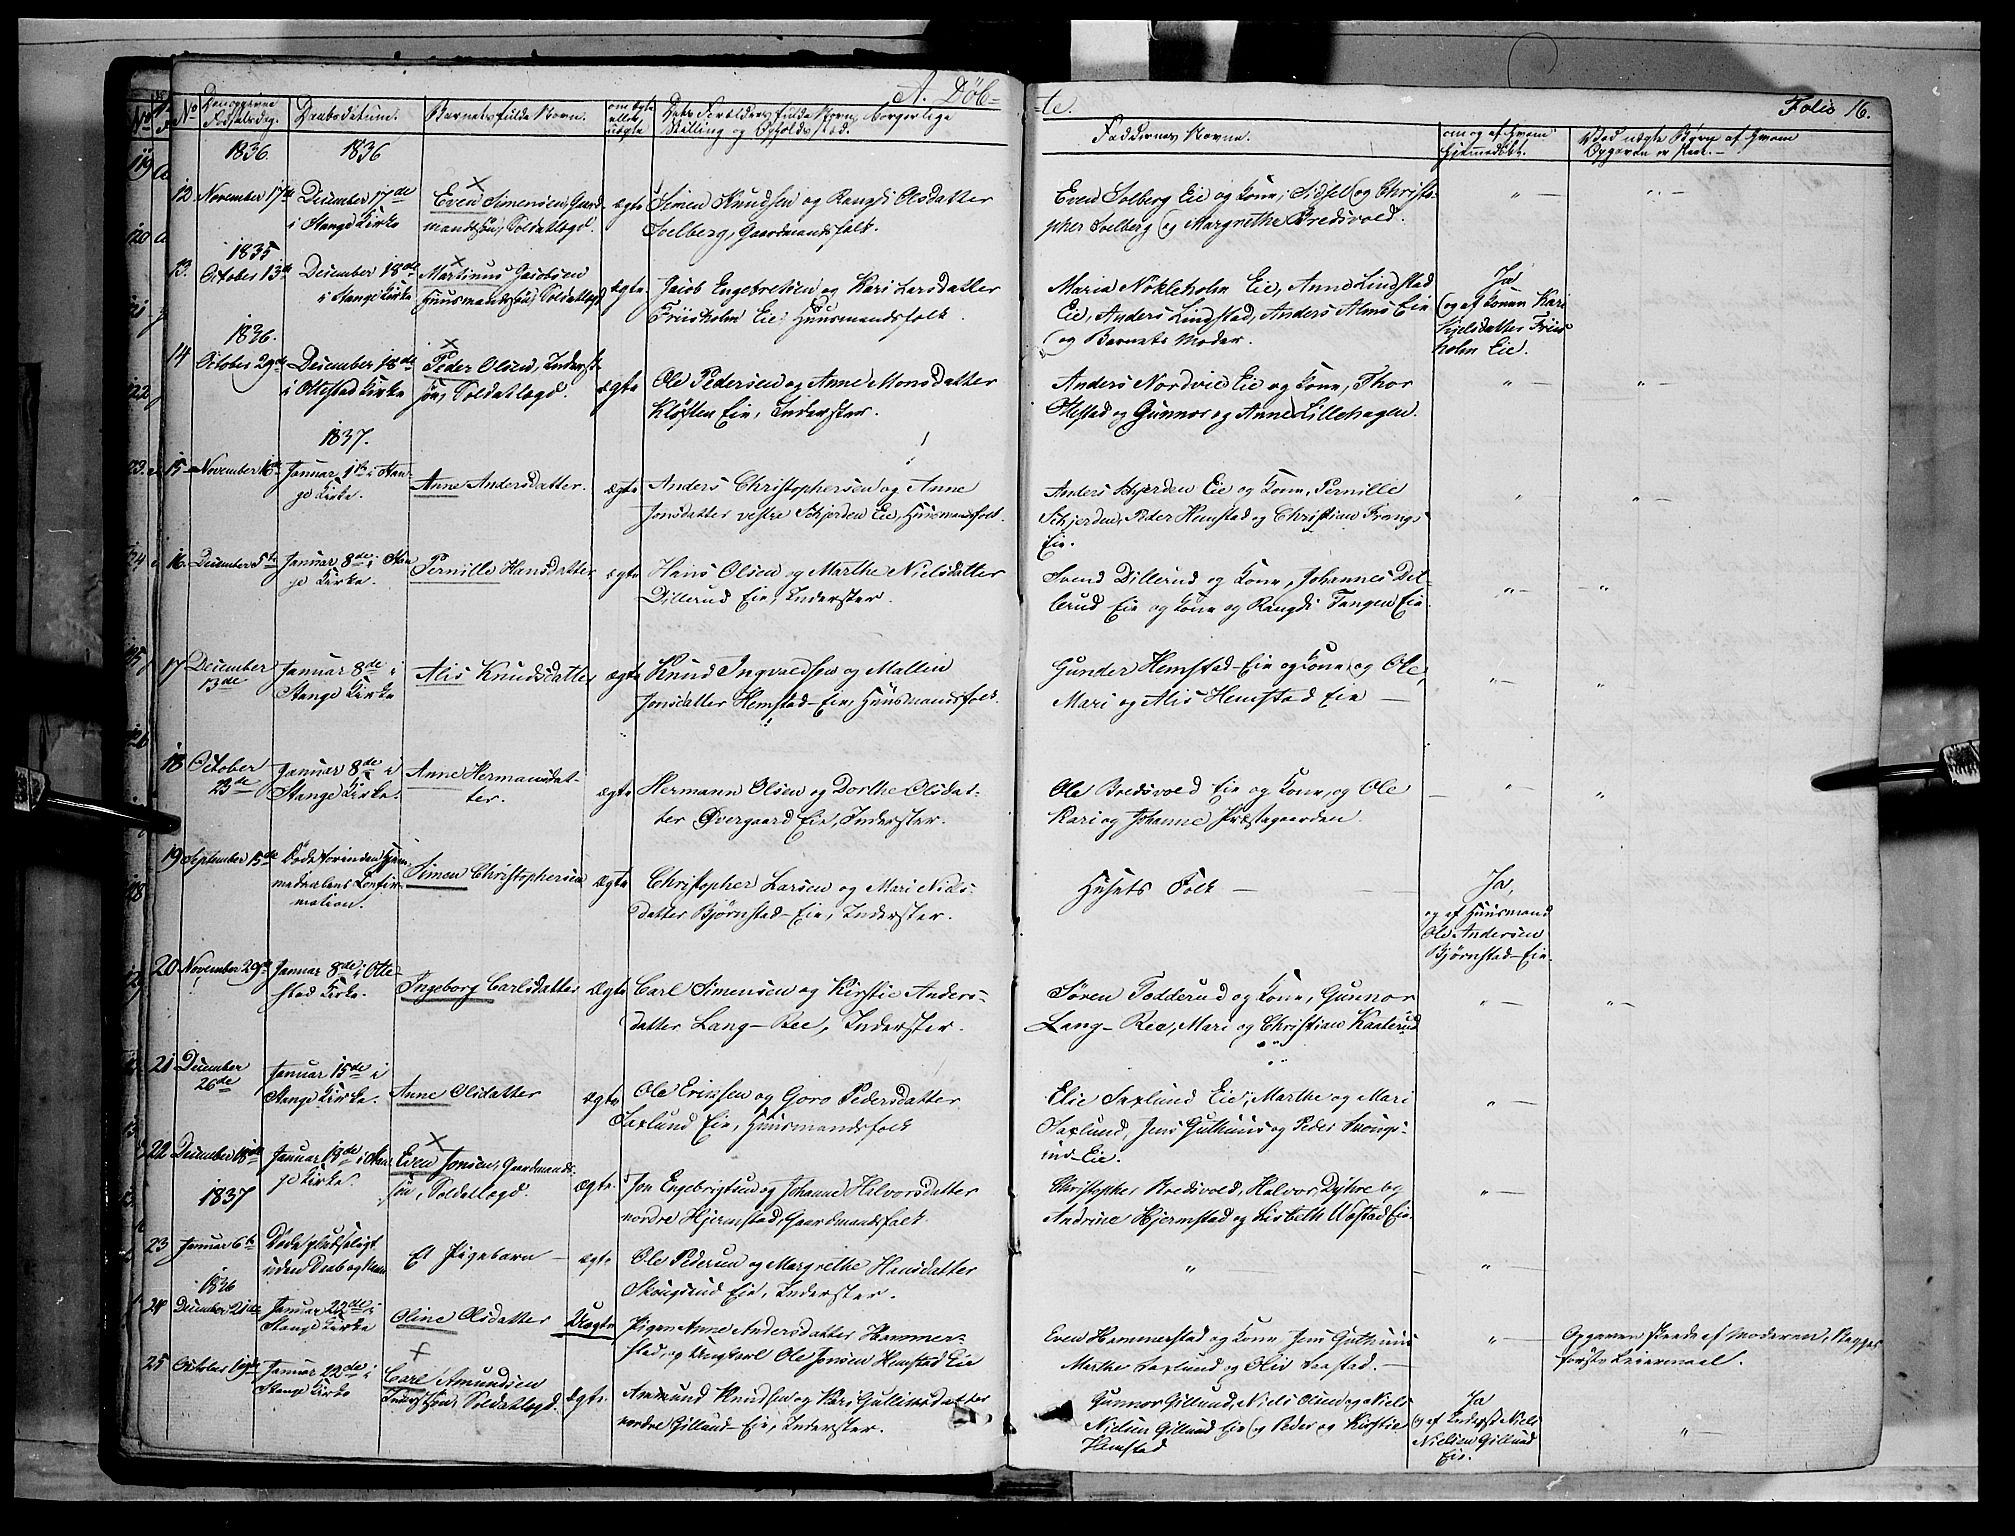 A. Døb-
-te.
Folio 16.
No
Daabsdatum.
Barnets fulde Navn.
om ægte
eller
uægte
Faddernes Navne.
om og af Hvem
hjemmedøbt.
Ved uægte Børn af Hvem
Opgaven er skeet.
1836. 1836
12 November 17de December 17de
i Stange Kirke
Even Simensen, Gaard-
mandssøn, Soldatlægd.
ægte
Simen Knudsen og Rangdi Olsdatter
Solberg, Gaardmandsfolk.
Even Solberg Eie og Kone, Sidsel og Christo-
pher Solberg og Margrethe Bredsvold.
1835
13. October 13de December 18de
i Stange Kirke
Martinus Jacobsen
Huusmandssøn, Soldatlægd
ægte
Jacob Engebretsen og Kari Larsdatter
Friisholm Eie, Huusmandsfolk.
Maria Nökleholm Eie, Anne Lindstad
Eie, Anders Lindstad, Anders Alms Eie
og Barnets Moder.
Ja
og af Konen Kari
Nielsdatter Friis
holm Eie.
1836.
14 October 29de December 18de
i Ottestad Kirke
Peder Olsen, Inderst-
søn, Soldatlægd.
ægte
Ole Pedersen og Anne Monsdatter
Kløften Eie, Inderster.
Anders Nordvie Eie og Kone, Thor
Ilestad og Gunnor og Anne Lillehagen.
1837.
15 November 16de Januar 1ste i Stan-
ge Kirke.
Anne Andersdatter.
ægte
Anders Christophersen og Anne
Jonsdatter vestre Schjerden Eie, Huusmandsfolk.
Anders Schjerden Eie og Kone, Pernille
Schjerden, Peder Hemstad og Christian Frangs
Eie.
16. December 5te Januar 8de i Stan
ge Kirke.
Pernille Hansdatter
ægte
Hans Olsen og Marthe Nielsdatter
Dillerud Eie, Inderster.
Svend Dillerud og Kone, Johannes Dil-
lerud Eie og Kone og Rangdi Tangen Eie.
17 December
13de
Januar 8de i
Stange Kirke
Alis Knudsdatter
ægte
Knud Ingvaldsen og Mallin
Jonsdatter Hemstad-Eie, Huusmandsfolk.
Gunder Hemstad-Eie og Kone, og Ole,
Mari og Alis Hemstad Eie
18 October
23de
Januar 8de i
Stange Kirke.
Anne Hermansdat-
ter.
ægte
Hermann Olsen og Dorthe Olsdat-
ter Øvergaard Eie, Inderster.
Ole Bredsvold Eie og Kone, og Ole
Kari og Johanne Præstegaarden.
19 September 15de Døde forinden Hjem-
medaabens Confir-
mation.
Simen Christophersen
ægte
Christopher Larsen og Mari Niels-
datter Bjørnstad-Eie, Inderster.
Husets Folk
Ja,
og af Huusmand
Ole Andersen
Bjørnstad-Eie.
20 November 29de Januar 8de i Otte-
stad Kirke.
Ingeborg Carlsdatter
ægte
Carl Simensen og Kirstie Anders-
datter Lang-Ree, Inderster.
Søren Todderud og Kone, Gunnor
Lang-Ree, Mari og Christian Kaaterud
21 December
26de
Januar 15de i
Stange Kirke.
Anne Olsdatter
ægte
Ole Ericksen og Goro Pedersdatter
Saxlund Eie, Huusmandsfolk
Elie Saxlund Eie, Marthe og Mari
Saxlund, Jens Guthuus og Peder Skougs-
rud-Eie.
22 December 18de Januar 19de i Stan
ge Kirke.
Even Jonsen, Gaardmands-
søn, Soldatlægd.
ægte
Jon Engebrigtsen og Johanne Halvorsdatter
nordre Hjermstad, Gaardmandsfolk.
Christopher Bredsvold, Halvor Dystre og
Andrine Hjermstad og Lisbeth Ulvstad Eie.
1837
23 Januar 6te Døde pludseligt
uden Daab og Navn
Et Pigebarn
ægte
Ole Pedersen og Margrethe Hansdatter
Skougsrud Eie, Inderster.
1836
24 December 21de Januar 22de i
Stange Kirke
Oline Olsdatter
Uægte
Pigen Anne Andersdatter Hammer-
stad, og Ungkarl Ole Jonsen Hemstad Eie
Even Hammerstad og Kone, Jens Guthuus
Marthe Saxlund og Oliv Saastad.
Opgaven skeede af Moderen, Begges
første Leiermaal.
25 October 19de Januar 22de i
Stange Kirke
Carl Amundsen
Inderstsøn, Soldatlægd.
ægte
Ammund Knudsen og Kari Gulliksdatter
nordre Gillund-Eie, Inderster.
Gunnor Gillund, Niels Olsen og Niels
Nielsen Gillund Eie og Peder og Kirstie
Hemstad
Ja
og af Inderst Niels
Nielsen Gillund
Eie.